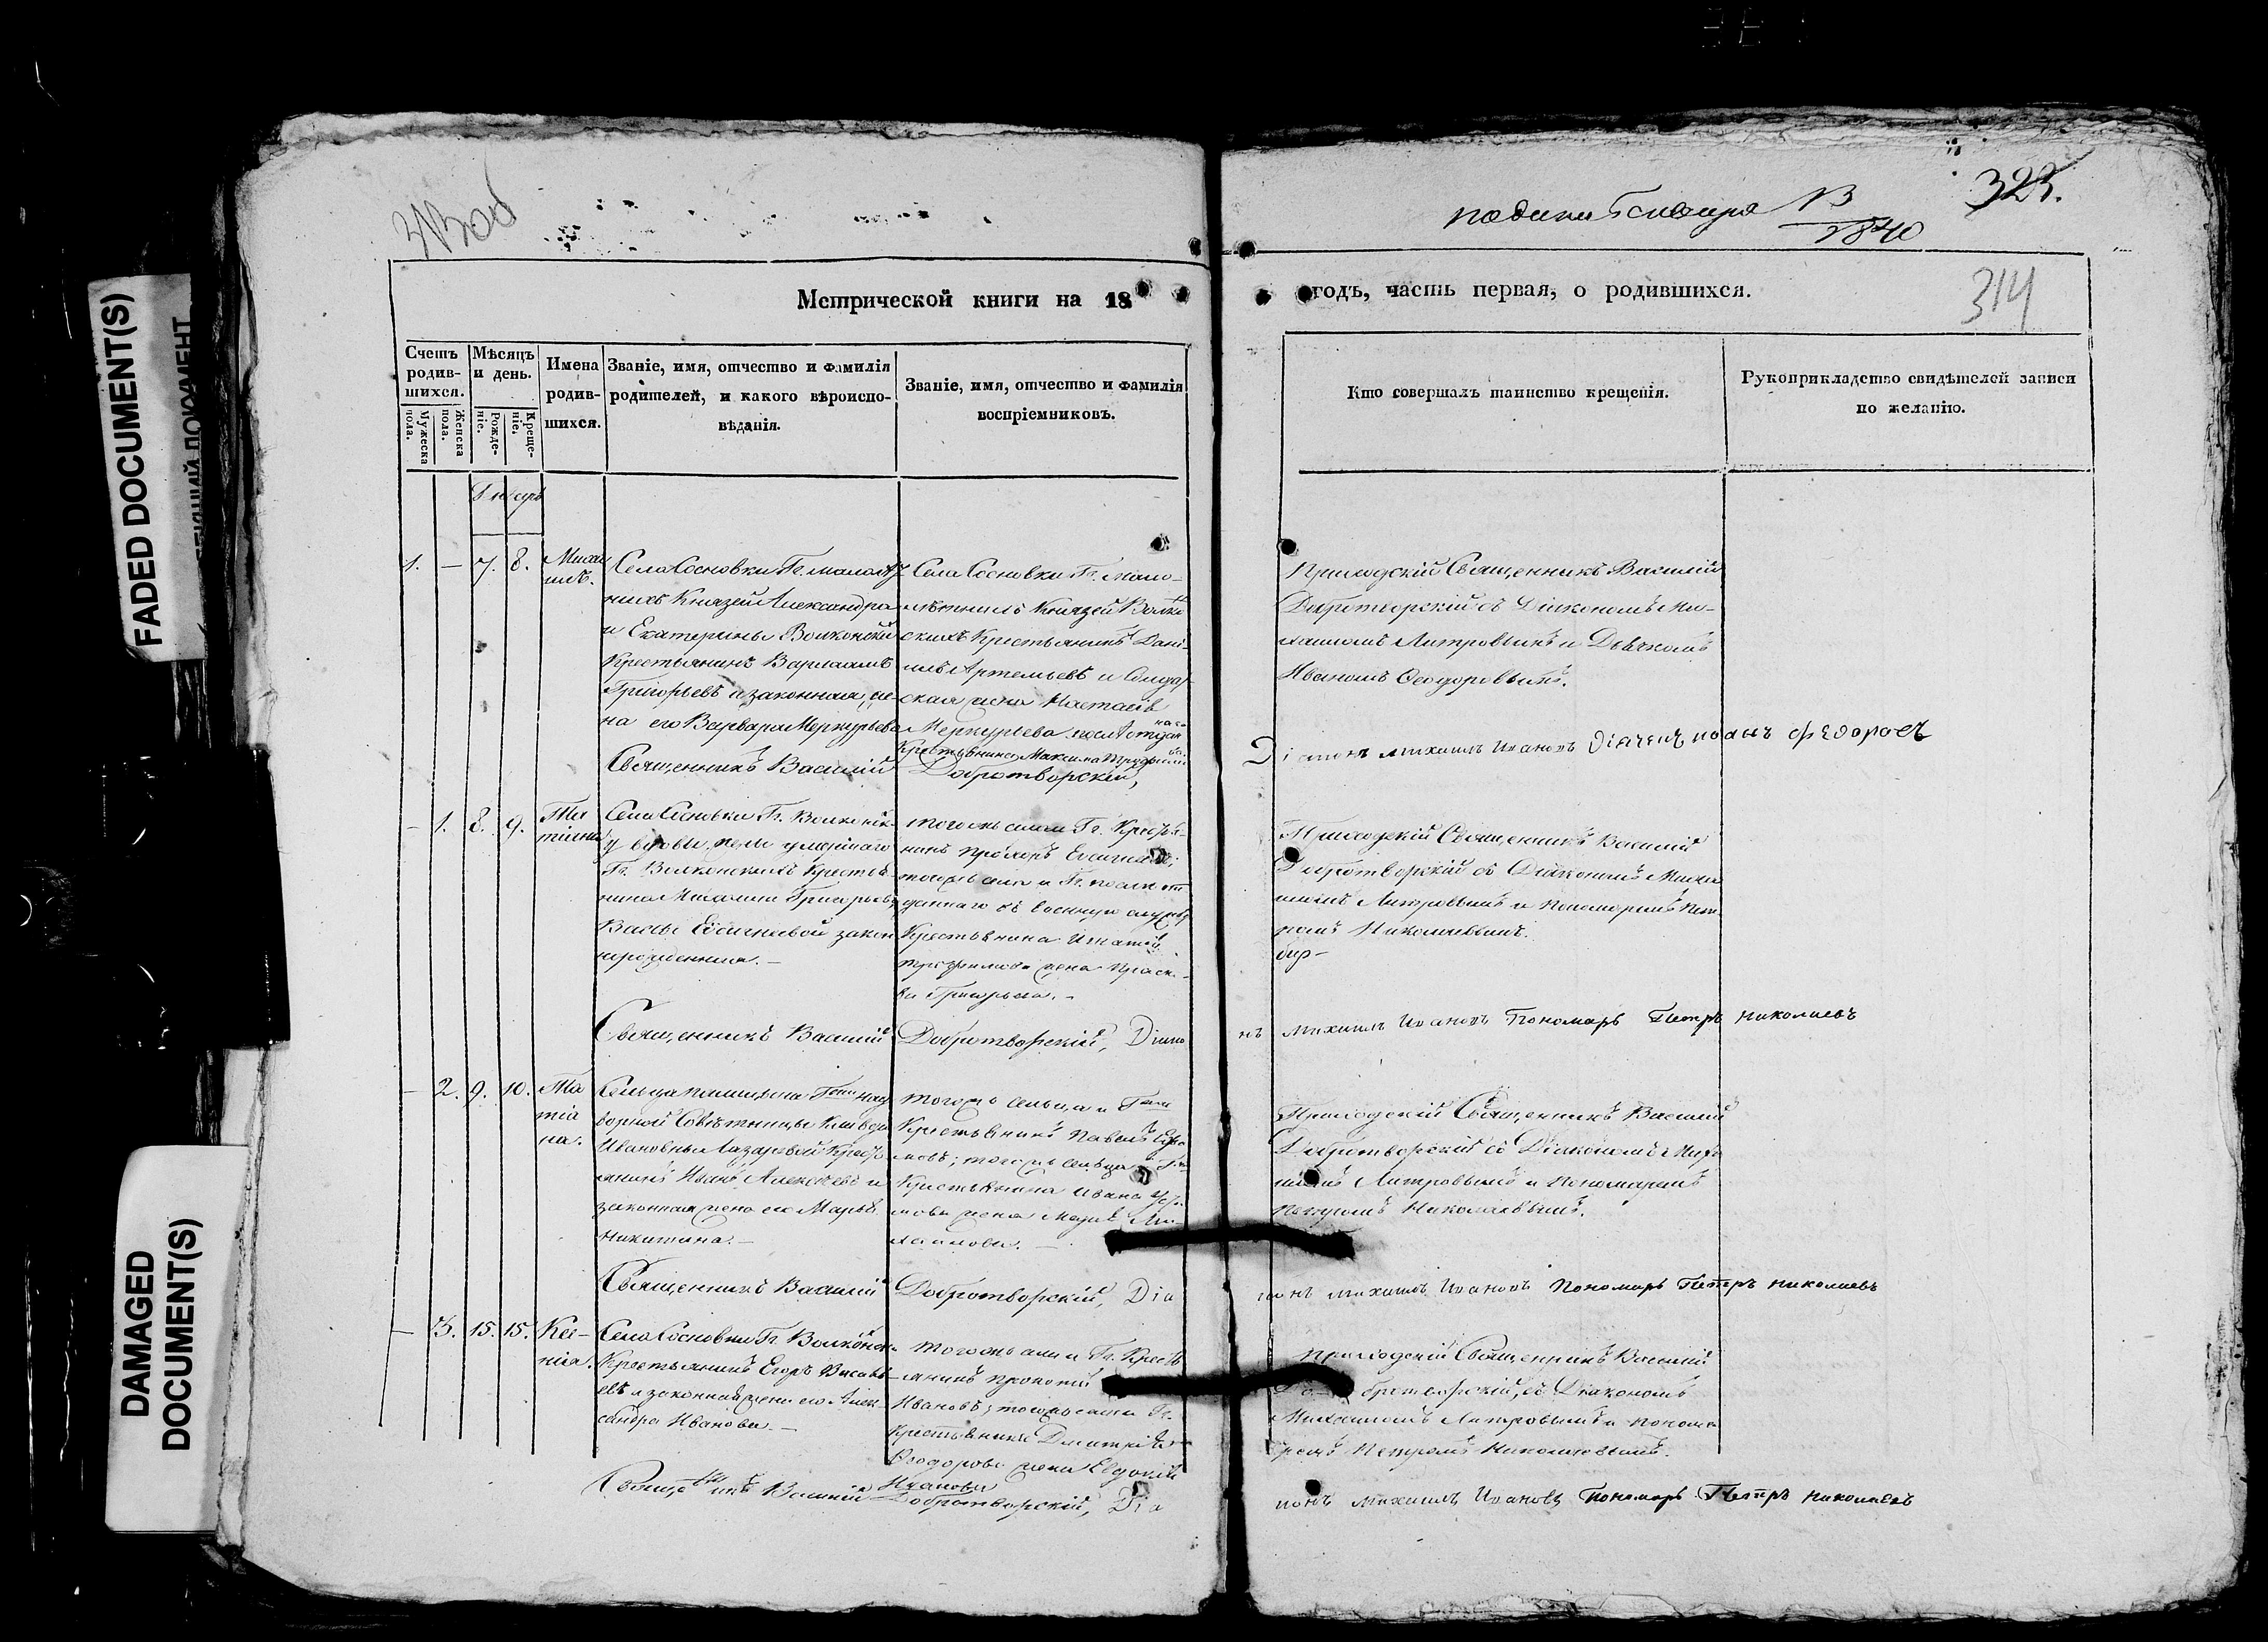 FADED DOCUMENT(S)
DAMAGED
DOCUMENT(S)
323.
1840
314
Метрической книги на 18
годъ, часть первая, о родившихся.
Счетъ
родив-
шихся.
Мужеска
пола.
Женска
пола.
Мѣсяцъ
и день.
Рожде-
ніе.
Креще-
ніе.
Имена
родив-
шихся.
Званіе, имя, отчество и фамилія
родителей, и какого вѣроиспо-
вѣданія.
Званіе, имя, отчество и фамилія
воспріемниковъ.
Кто совершалъ таинство крещенія.
Рукоприкладство свидѣтелей записи
по желанію.
1. — 7. 8. Миха
илъ.
Села Сосновки Гг. малолѣт
нихъ Князей Александра
и Екатерины Волконски
Крестьянинъ Варлаамъ
Григорьевъ и законная же-
на его Варвара Меркурьева
Села Сосновки Гг. мало-
лѣтнихъ Князей Волкон
скихъ Крестьянинъ Дани-
илъ Артемьевъ и Солдат
ская жена Настасія
Меркурьева
Крестьянина Максима
Приходскій Священникъ Василій
Добротворскій съ Діакономъ Ми-
хаиломъ Дмитровымъ и Дьячкомъ
Иваномъ Ѳеодоровымъ.
Священникъ Василій Добротворскій,
Діаконъ Михаилъ Ивановъ Дьячекъ Иванъ Федоровъ
— 1. 8. 9. Та
тіана
Села Сосновки Гг. Волконск
у вдовы жены умершаго
Гг. Волконскихъ Крестья
нина Михаила Григорьева
Вассы Евсигнеевой закон
норожденная. —
того жъ села и Гг. Крестья
нинъ Прохоръ
того жъ села и Гг.
даннаго въ военную службу
Крестьянина Игнатія
жена Праско
вья Григорьева. —
Приходскій Священникъ Василій
Добротворскій съ Діакономъ Миха
иломъ Дмитровымъ и Пономаремъ Пет
ромъ Николаевымъ.
Священникъ Василій Добротворскій, Діако
нъ Михаилъ Ивановъ Пономарь Петръ Николаевъ
— 2. 9. 10. Та
тіа
на.
Сельца Гжи над
ворной Совѣтницы Клавдіи
Ивановны Лазаревой Крестья
янинъ Иванъ Алексѣевъ и
законная жена его Марья
Никитина. —
того жъ сельца и Гжи
Крестьянинъ Павелъ
того жъ сельца и Гжи
Крестьянина Ивана
жена Марья Ми
хаилова. —
Приходскій Священникъ Василій
Добротворскій съ Діакономъ Миха
иломъ Дмитровымъ и Пономаремъ
Петромъ Николаевымъ.
Священникъ Василій Добротворскій, Діа
конъ Михаилъ Ивановъ Пономарь Петръ Николаевъ
— 3. 15. 15. Ксе-
нія.
Села Сосновки Гг. Волконск
Крестьянинъ Егоръ
евъ и законная жена его Алек
сандра Иванова. —
того жъ села и Гг. Кресть
янинъ Прокопій
Ивановъ; того жъ села Гг.
Крестьянина Дмитрія
Ѳеодорова жена Евдокія
Иванова
Приходскій Священникъ Василій
Добротворскій, съ Діакономъ
Михаиломъ Дмитровымъ и понома
ремъ Петромъ Николаевымъ.
Священникъ Василій Добротворскій, Діа
конъ Михаилъ Ивановъ Пономарь Петръ Николаевъ